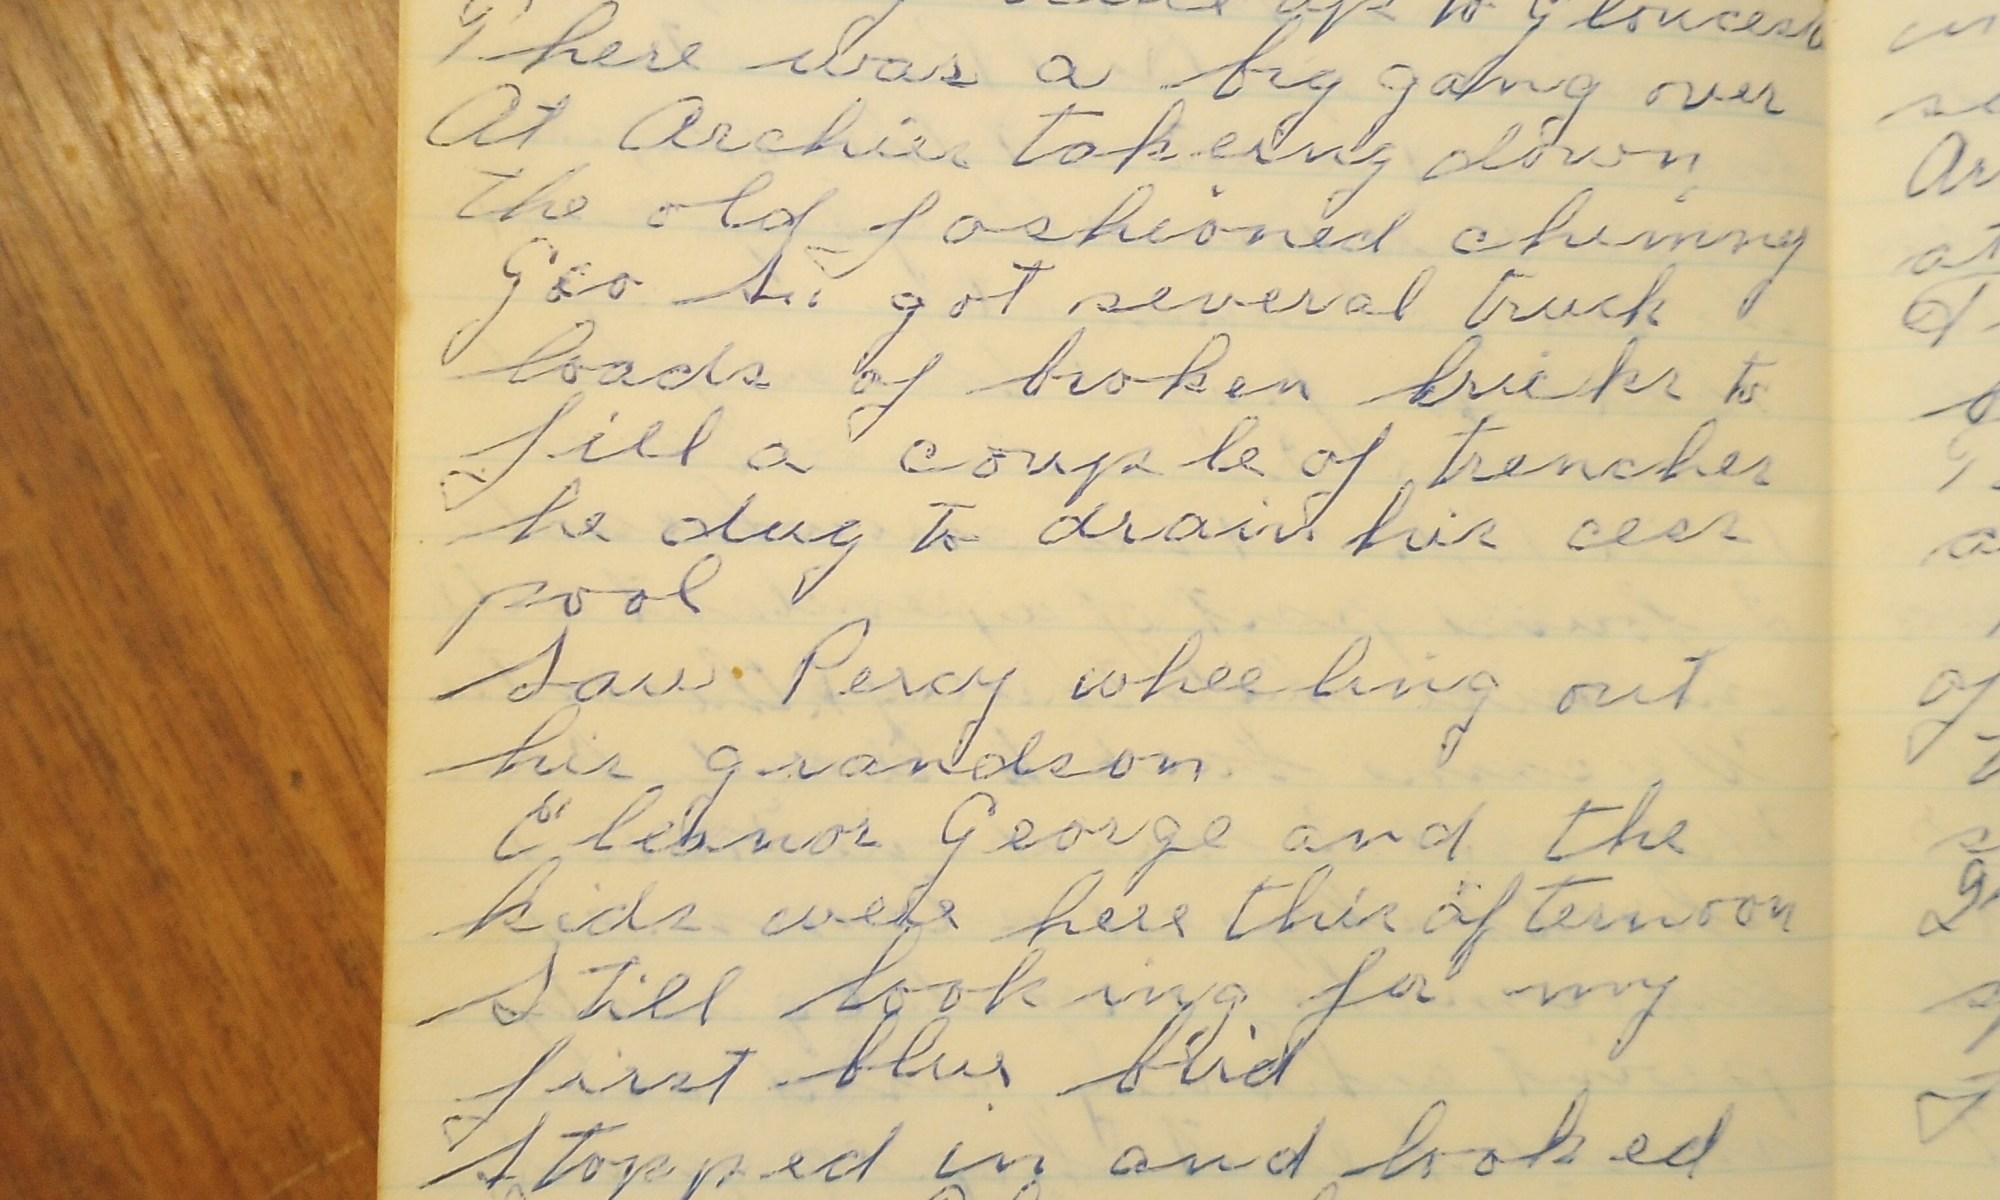 to Gloucester
There was a big gang over
At Archies takeing down
the old fashioned chimney
Geo got several truck
loads of broken bricks to
fill a couple of trenches
he dug to drain his cess
pool
Saw Percy wheeling out
his grandson
Eleanor George and the
kids were here this afternoon
Still looking for my
first blue bird
Stopped in and looked